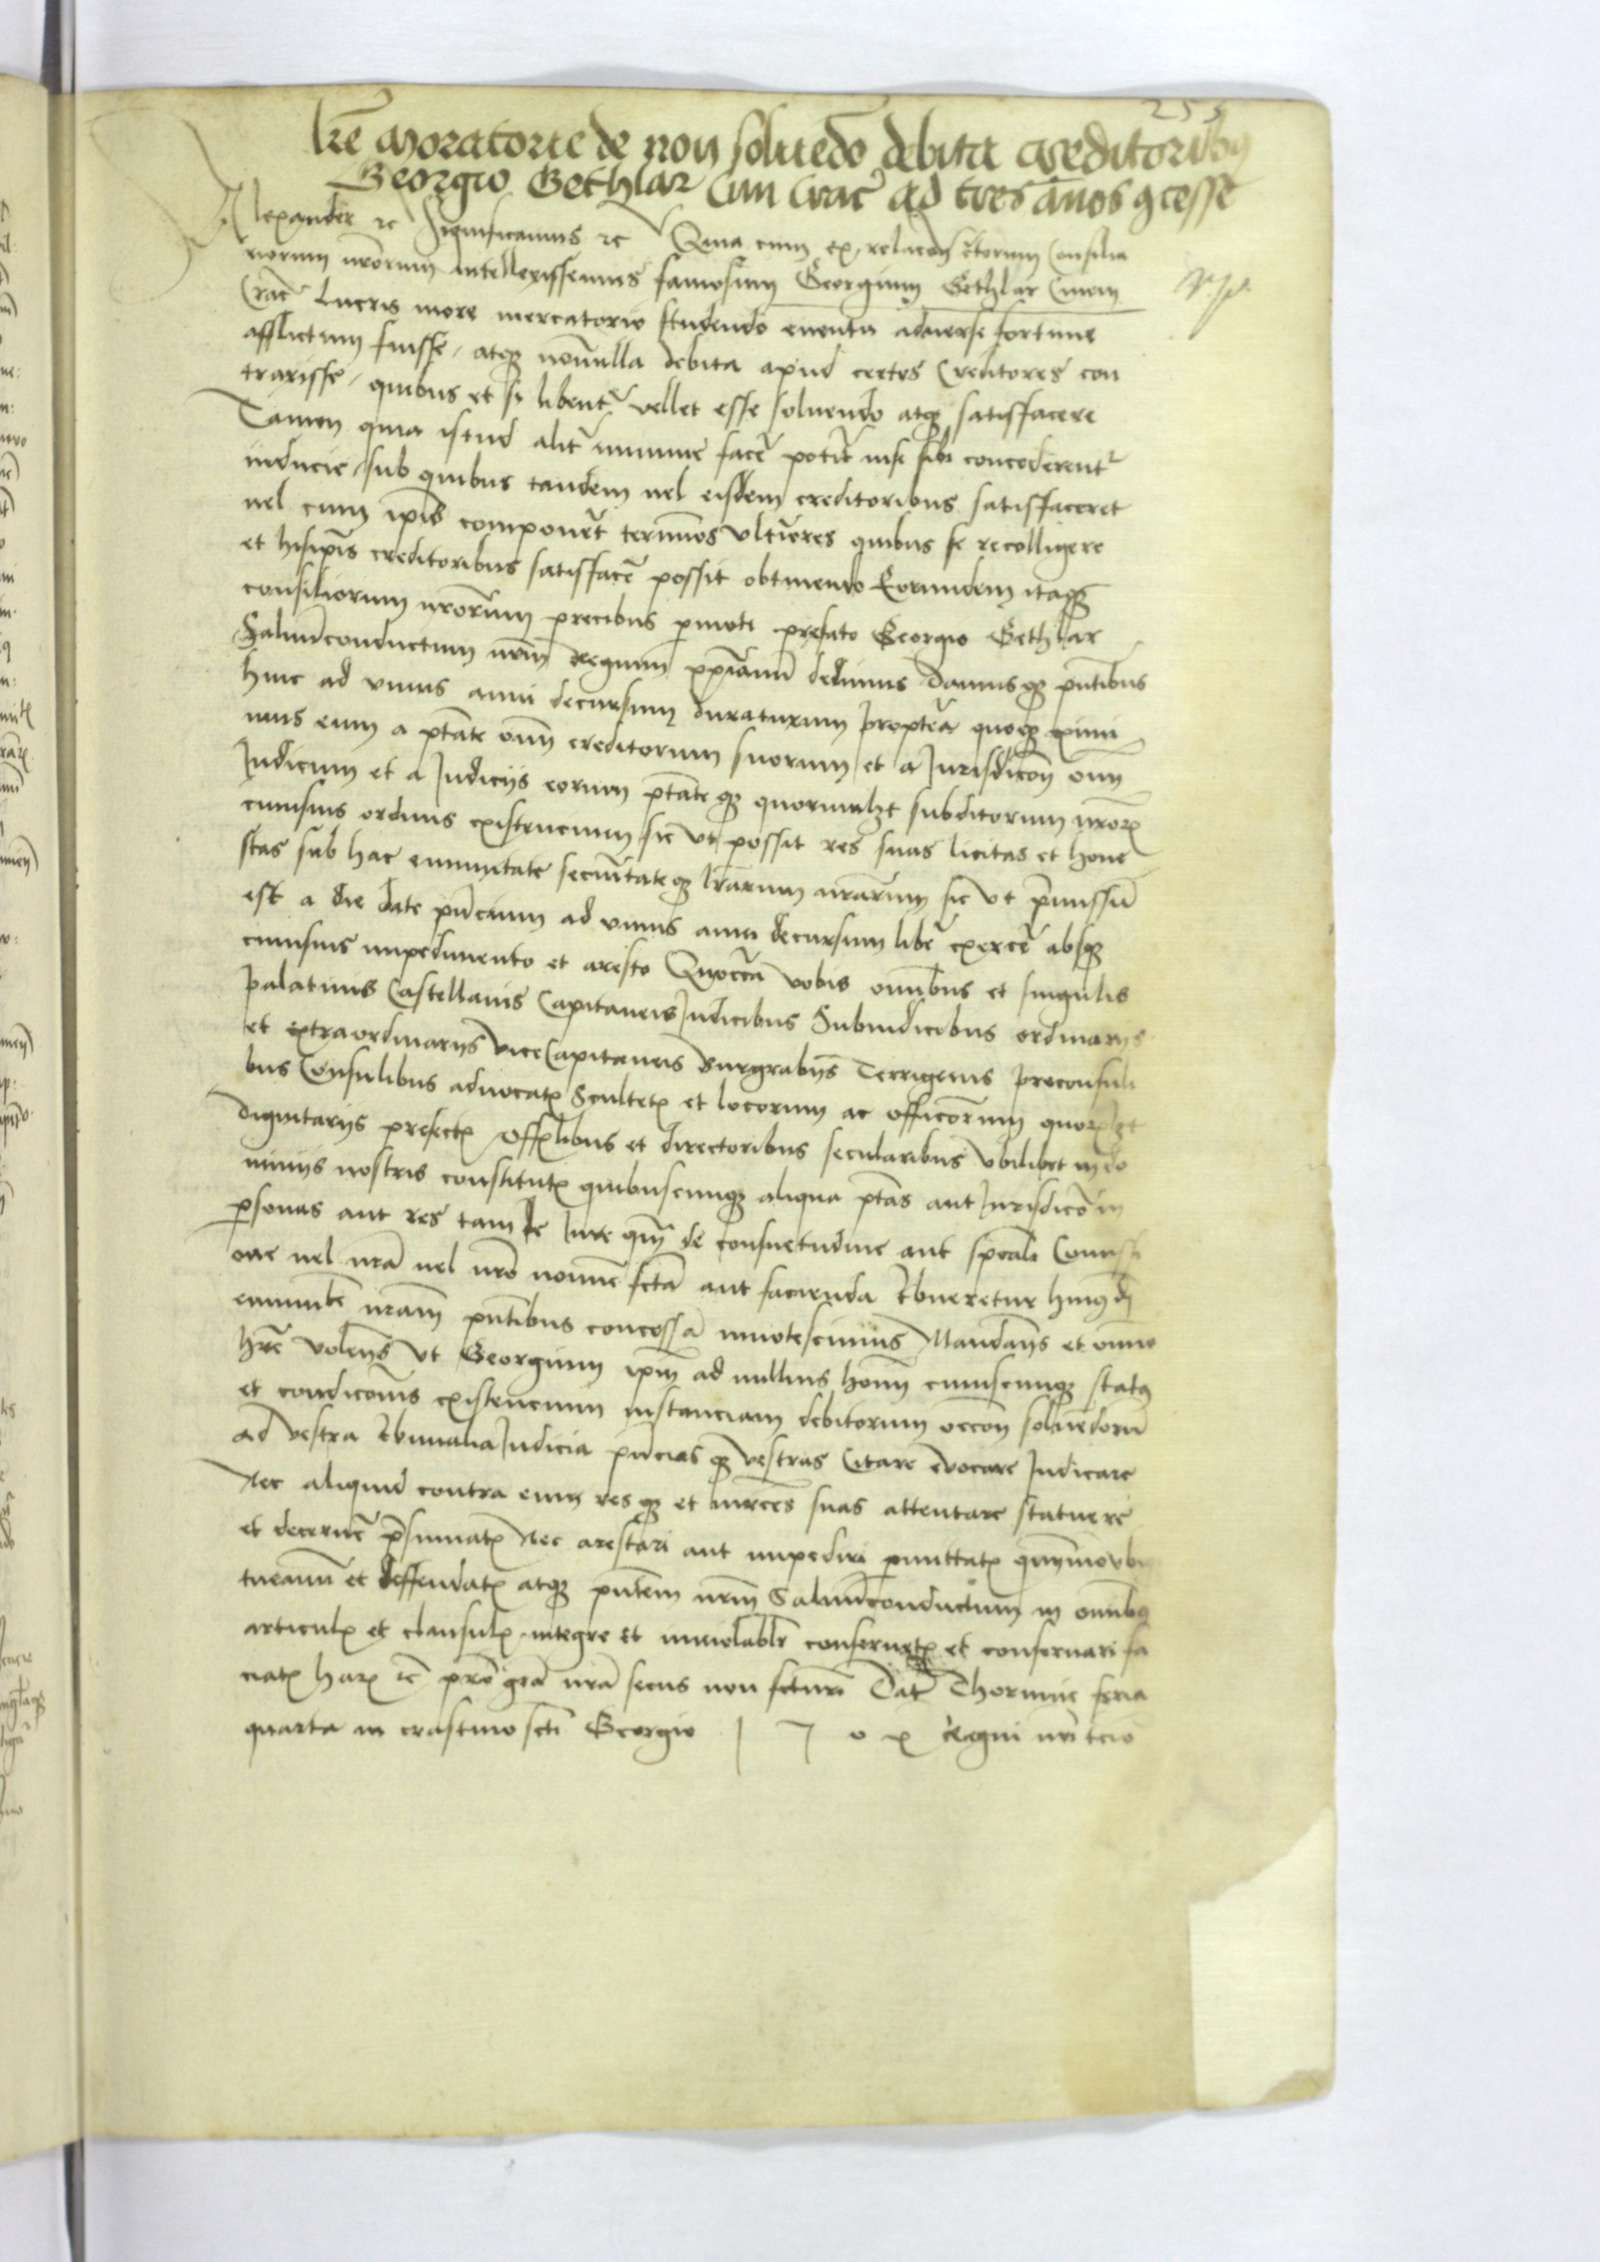 255
lrẽ moratorie de non soluẽdo debita creditoribus
Georgio Gethlar Ciui Crac̃ ad tres annos ꝯcesse
Alexander ⁊c Significamus ⁊c Quia cum ex relacõn c̃torum Consilia
riorum nr̃orum intellexissemus famosum Georgium Gethlar Ciuem
Crac̃ Lucris more mercatorio studendo euentu aduerse fortune
afflictum fuisse, atqꝫ nonnulla debita apud certos Creditores con
traxisse, quibus et si libent̃ vellet esse soluendo atqꝫ satisfacere
Tamen quia istud alit̃ minime facẽ potit̃ nisi sibi concederent̃
inducie, sub quibus tandem uel eisdem creditoribus satisfaceret
uel cum ip̃is componeret̃ terminos vlt̃iores quibus se recolligere
et hisip̃is creditoribus satisfacẽ possit obtinendo Eorundem itaqꝫ
consiliorum nr̃orum precibus p̱moti prefato Georgio Gethlar
Saluũconductum nr̃m Regium xp̃ianũ dedimus Damusqꝫ pñtibus
hinc ad vnius anni decursum duraturum Proptẽa quoqꝫ eximi
mus eum a ptãte om̃ creditorum suorum et a Jurisdicõn om̃
Judicum et a Judicijs eorum ptãteqꝫ quorumlꝫt subditorum nr̃orꝝ
cuiusuis ordinis existencium sic vt possit res suas licitas et hone
stas sub hac emunitate securitateqꝫ lr̃arum nr̃arum sic vt p̃missũ
est a die date pñcium ad vnius anni decursum libẽ exercẽ absqꝫ
cuiusuis impedimento et aresto Quocc̃a vobis om̃ibus et singulis
Palatinis Castellanis Capitaneis Judicibus Subiudicibus ordinarijs
et extraordinarijs ViceCapitaneis Burgrabijs Terrigenis Preconsuli
bus Consulibus aduocatꝭ Scultetꝭ et locorum ac officiorum quorꝝlꝫt
dignitarijs prefectꝭ Offilibus et directoribus secularibus vbilibet in do
minijs nostris constitutꝭ quibuscunqꝫ aliqua ptãs aut Jurisdicõ in
p̱sonas aut res tam de Jure qm̃ de consuetudine aut spẽali Comissi
one uel nrã uel nr̃o nomine fctã aut facienda tr̃bueretur huiusm̃di
emunitẽ nrãm pñtibus concessã innotescimus Mandañs et omnino
hr̃e voleñs vt Georgium ip̃m ad nullius hom̃ cuiuscunqꝫ status
et condicoñis existencium instanciam debitorum occõn soluẽdorũ
ad vestra tr̃bunalia Judicia pñciasqꝫ vestras Citare euocare Judicare
Nec aliquid contra eum resqꝫ et merces suas attentare statuere
et decernẽ p̃sumatꝭ Nec arestari aut impediri p̱mittatꝭ qm̃ymo
tueamĩ et deffendatꝭ atqꝫ pñtem nr̃m Saluũconductum in om̃ibꝫ
articulꝭ et clausulꝭ integre et inuiolabilr̃ conseruetꝭ et conseruari fa
ciatꝭ harꝝ ⁊c pro gr̃a nr̃a secus non fcturi Dat̃ Thorunie feria
quarta in crastino scti Georgio 1 7 0 x regni nr̃i tcio